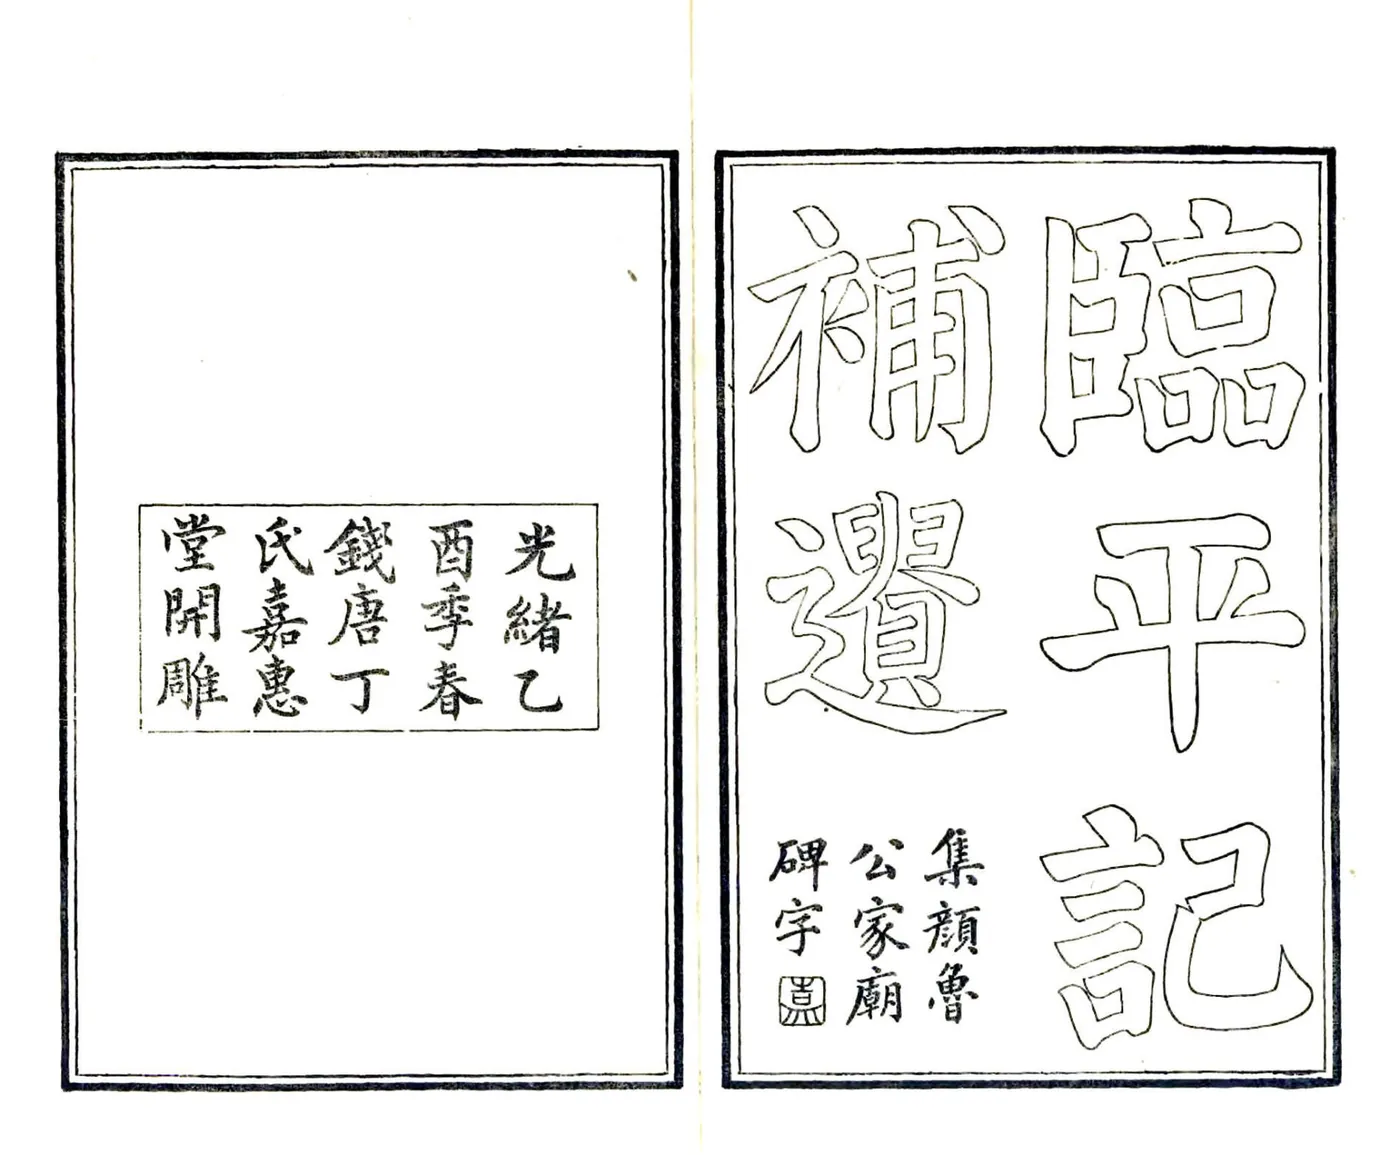 臨平記
補遺
集顔魯
公家廟
碑字
光緒乙
酉季春
錢唐丁
氏嘉惠
堂開雕